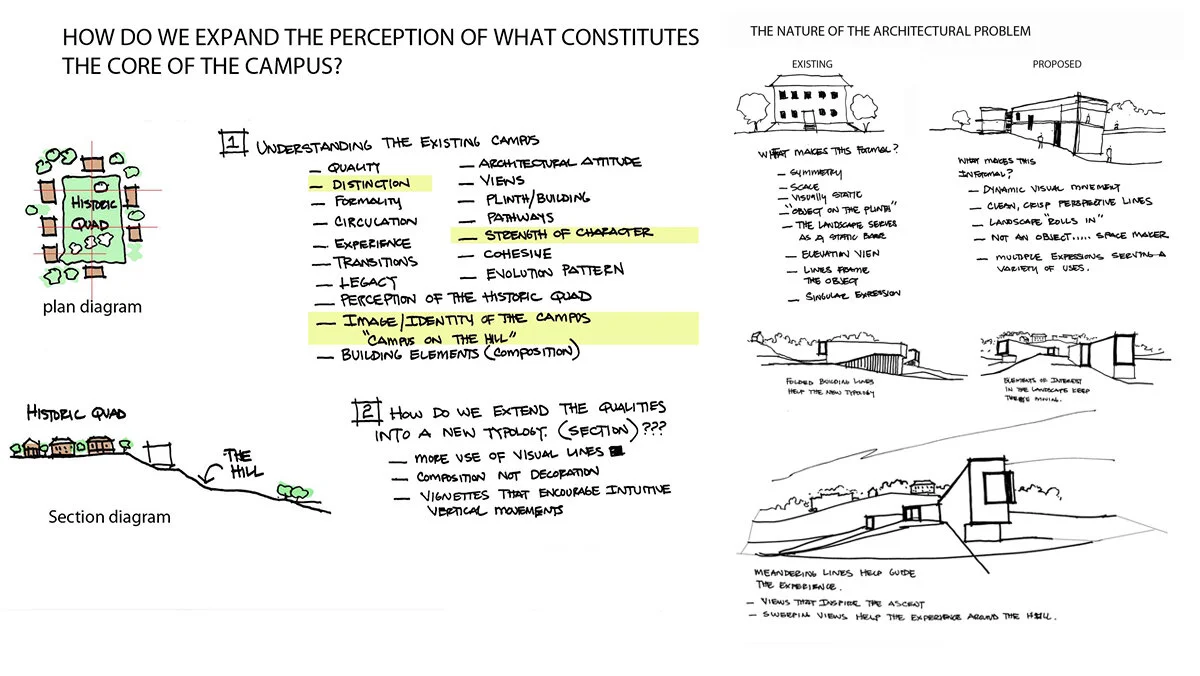 HOW DO WE EXPAND THE PERCEPTION OF WHAT CONSTITUTES
THE CORE OF THE CAMPUS?
HISTORIC
QUAD
plan diagram
1 UNDERSTANDING THE EXISTING CAMPUS
— QUALITY
— DISTINCTION
— FORMALITY
— CIRCULATION
— EXPERIENCE
— TRANSITIONS
— LEGACY
— PERCEPTION OF THE HISTORIC QUAD
— IMAGE/IDENTITY OF THE CAMPUS
"CAMPUS ON THE HILL"
— BUILDING ELEMENTS (COMPOSITION)
— ARCHITECTURAL ATTITUDE
— VIEWS
— PLINTH/BUILDING
— PATHWAYS
— STRENGTH OF CHARACTER
— COHESIVE
— EVOLUTION PATTERN
HISTORIC QUAD
THE
HILL
Section diagram
2 HOW DO WE EXTEND THE QUALITIES
INTO A NEW TYPOLOGY. (SECTION) ???
— MORE USE OF VISUAL LINES
— COMPOSITION NOT DECORATION
— VIGNETTES THAT ENCOURAGE INTUITIVE
VERTICAL MOVEMENTS
THE NATURE OF THE ARCHITECTURAL PROBLEM
EXISTING
WHAT MAKES THIS FORMAL?
— SYMMETRY
— SCALE
— VISUALLY STATIC
— "OBJECT ON THE PLINTH"
— THE LANDSCAPE SERVES
AS A STATIC BASE
— ELEVATION VIEW
— LINES FRAME
THE OBJECT
— SINGULAR EXPRESSION
PROPOSED
WHAT MAKES THIS
INFORMAL?
— DYNAMIC VISUAL MOVEMENT
— CLEAN, CRISP PERSPECTIVE LINES
— LANDSCAPE "ROLLS IN"
— NOT AN OBJECT..... SPACE MAKER
— MULTIPLE EXPESSIONS SERVING A
VARIETY OF USES.
FOLDED BUILDING LINES
HELP THE NEW TYPOLOGY
ELEMENTS OF INTEREST
IN THE LANDSCAPE KEEP
MOVING.
MEANDERING LINES HELP GUIDE
THE EXPERIENCE.
— VIEWS THAT INSPIRE THE ASCENT
— SWEEPING VIEWS HELP THE EXPERIENCE AROUND THE HILL.